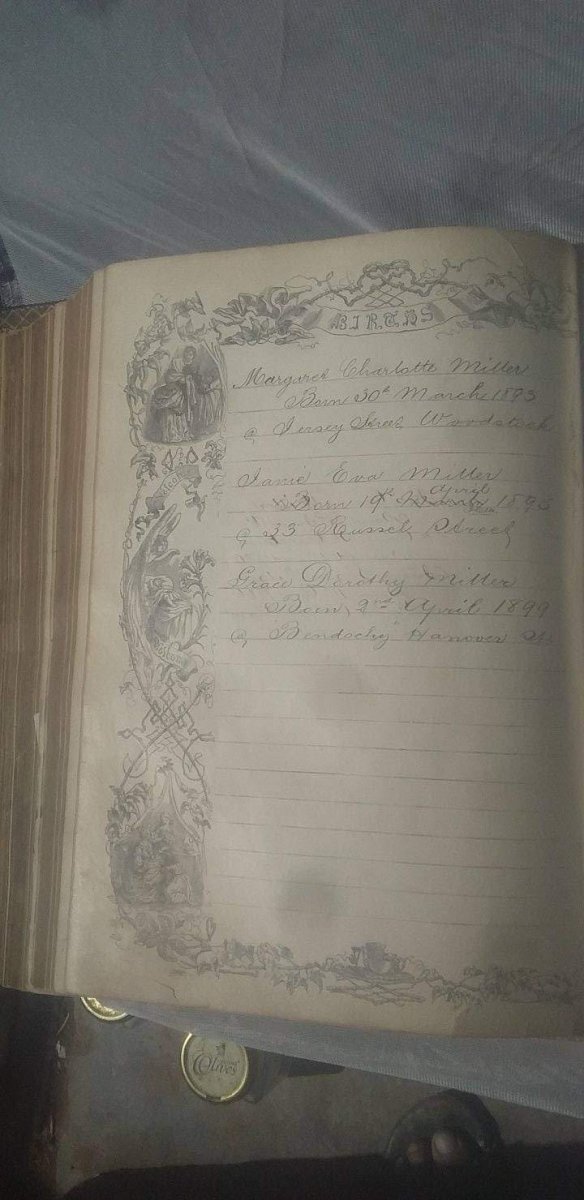 BIRTHS
Margaret Charlotte Miller
Born 30th March 1893
@ Jersey Street Woodstock
Janie Eva Miller
April
Born 19th 1895
@ 23 Russel Street
Grace Dorothy Miller
Born 2nd April 1899
@ Bendschy Hanover St.
Olives